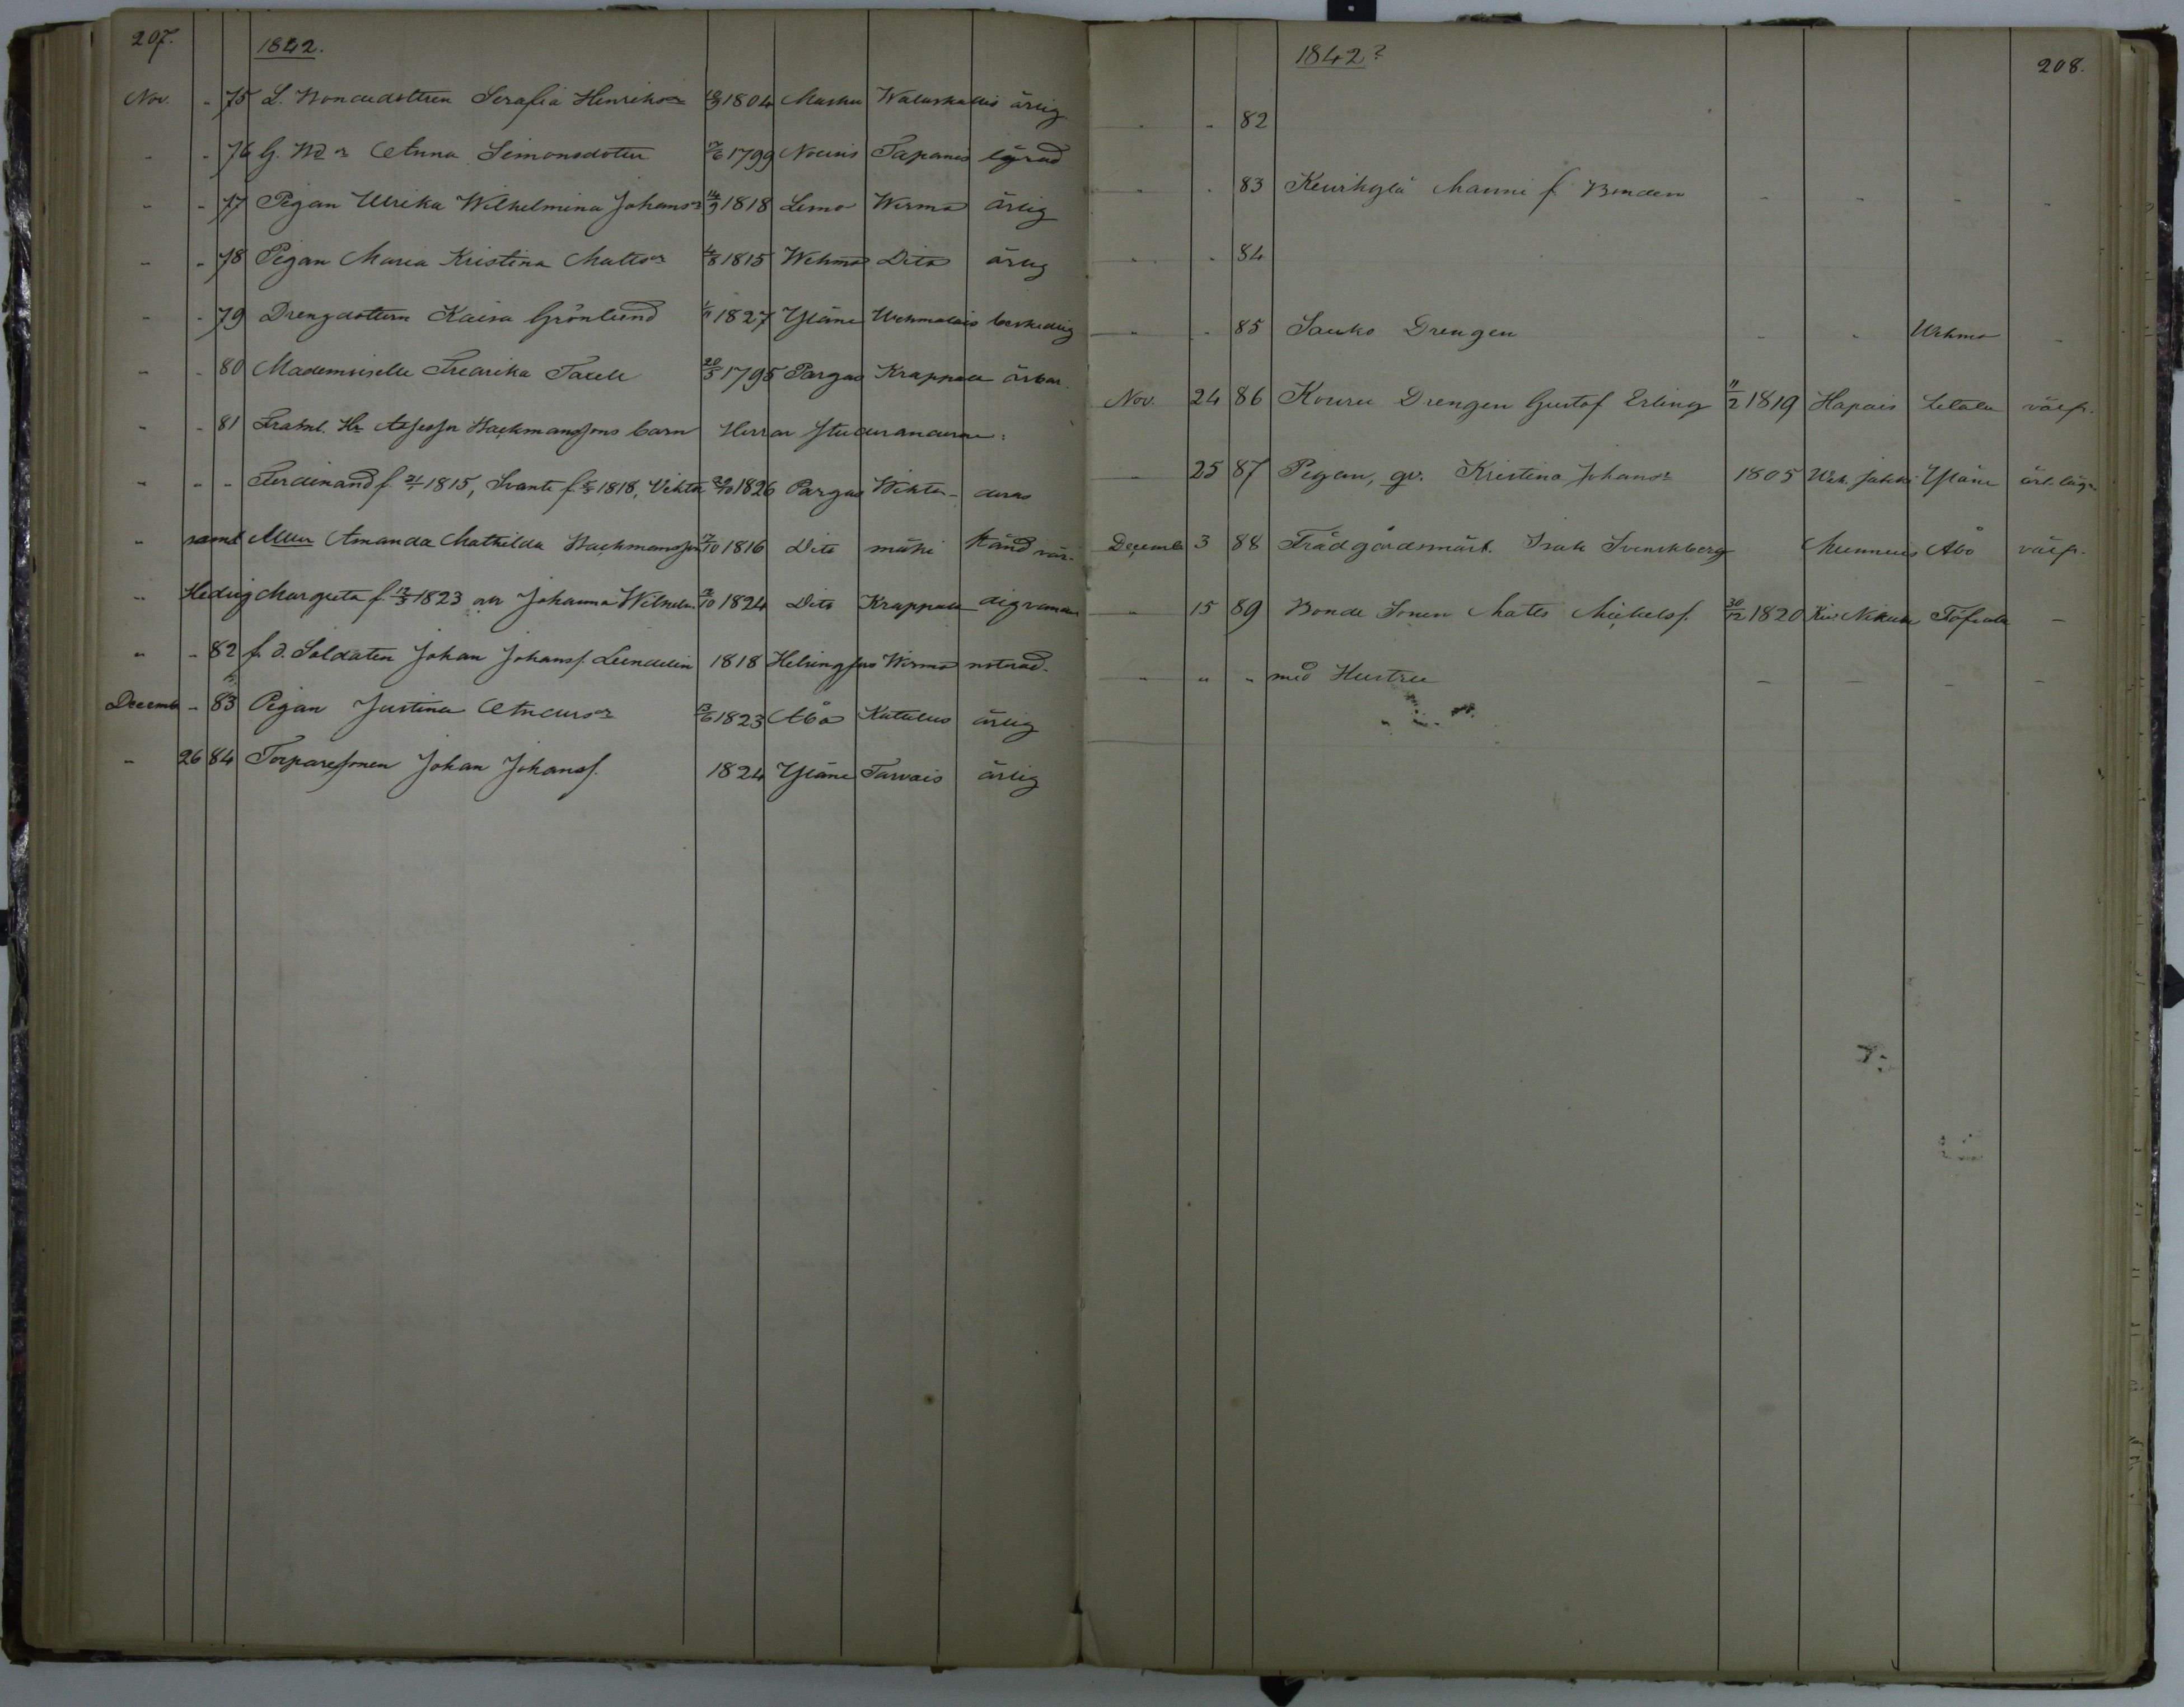 207.
1842.
Nov. - 75 L. Bondedottren Serafia Henriksdr 1804 Masku ärlig
- - 76 G. Anna Simonsdotter 17/6 1799 Nousis Tapanis
- - 77 Pigan Ulrika Wilhelmina Johansdr 14/9 1818 Lemo Wirmo ärlig
- - 78 Pigan Maria Kristina Mattsdr 4/8 1815 Wehmo Dito ärlig
- - 79 Drengdottern Kaisa Grönlund 1827 Yläne Wehmalais beskedlig
- - 80 Mademoiselle Fredrika Taxell 1795 Pargas Krappala ärbar.
- - 81 Hr Assessor Backmanssons barn Herrar Studerandena:
- - - Ferdinand f. 1815, Svante f. 1818, Viktor 1826 Pargas Wikter-
- samt Amanda Mathilda Backmansson 1816 Dito mäki
- Hedvig Margreta f. 1823 Johanna Wilhelm. 2/10 1824 Dito Krappala
- - 82 f. d. Soldaten Johan Johanss. Lundelin 1818 Helsingfors Wirmo
Decemb - 83 Pigan Justina Andersdr 1823 Åbo Katalus ärlig
- 26 84 Torparesonen Johan Johanss. 1824 Yläne Tarvais ärlig
1842?
208.
- - 82
- - 83 Keurikylä Manni f Bonden - - - -
- - 84
- - 85 Sauko Drengen - - Wehmo -
Nov. 24 86 Kouru Drengen Gustaf Erling 11/2 1819 Hapais Letala välfr.
- 25 87 Pigan, gv. Kristina Johansdr 1805 Yläne
Decemb 3 88 Trädgårdsmäst. Isak Svenskberg Munnuis Åbo välfr.
- 15 89 Bonde Sonen Matts Mickelss. 30/12 1820 Töfsala -
- " " med Hustru - - - -